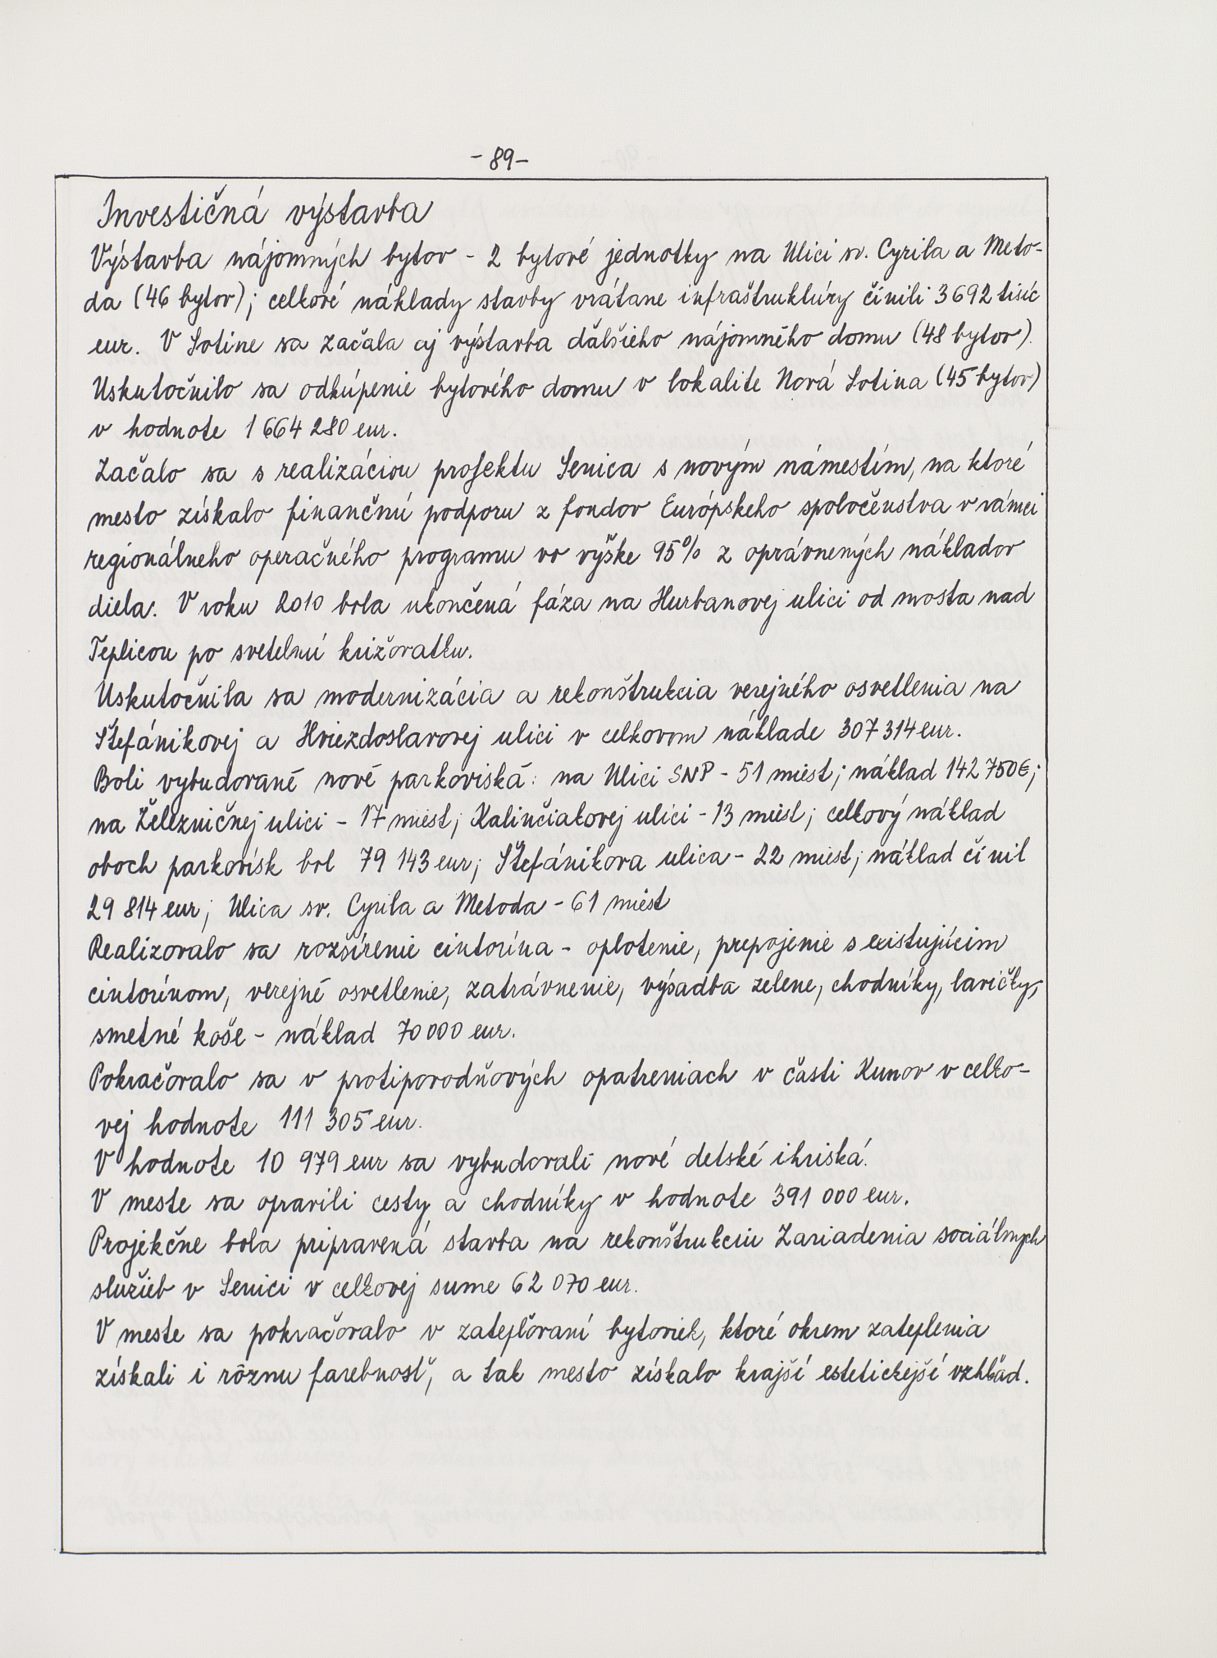 - 89 -
Investičná výstavba
Výstavba nájomných bytov - 2 bytové jednotky na Ulici sv. Cyrila a Meto-
da (46 bytov); celkové náklady stavby vrátane infraštruktúry činili 3 692 tisíc
eur. V Sotine sa začala aj výstavba ďalšieho nájomného domu (48 bytov).
Uskutočnilo sa odkúpenie bytového domu v lokalite Nová Sotina (45 bytov)
v hodnote 1 664 280 eur.
Začalo sa s realizáciou projektu Senica s novým námestím, na ktoré
mesto získalo finančnú podporu z fondov Európskeho spoločenstva v rámci
regionálneho operačného programu vo výške 95% z oprávnených nákladov
diela. V roku 2010 bola ukončená fáza na Hurbanovej ulici od mosta nad
Teplicou po svetelnú križovatku.
Uskutočnila sa modernizácia a rekonštrukcia verejného osvetlenia na
Štefánikovej a Hviezdoslavovej ulici v celkovom náklade 307 314 eur.
Boli vybudované nové parkoviská: na Ulici SNP - 51 miest; náklad 142 750 €;
na Železničnej ulici - 17 miest; Kalinčiakovej ulici - 13 miest; celkový náklad
oboch parkovísk bol 79 143 eur; Štefánikova ulica - 22 miest; náklad činil
29 814 eur; Ulica sv. Cyrila a Metoda - 61 miest
Realizovalo sa rozšírenie cintorína - oplotenie, prepojenie s existujúcim
cintorínom, verejné osvetlenie, zatrávnenie, výsadba zelene, chodníky, lavičky,
smetné koše - náklad 70 000 eur.
Pokračovalo sa v protipovodňových opatreniach v časti Kunov v celko-
vej hodnote 111 305 eur.
V hodnote 10 979 eur sa vybudovali nové detské ihriská.
V meste sa opravili cesty a chodníky v hodnote 391 000 eur.
Projekčne bola pripravená stavba na rekonštrukciu Zariadenia sociálnych
služieb v Senici v celkovej sume 62 070 eur.
V meste sa pokračovalo v zatepľovaní bytoviek, ktoré okrem zateplenia
získali i rôznu farebnosť, a tak mesto získalo krajší estetickejší vzhľad.